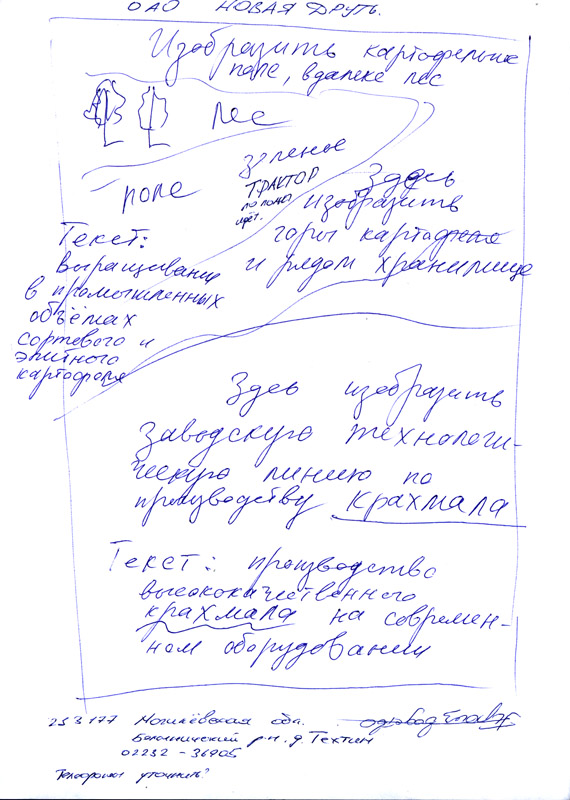 ОАО НОВАЯ ДРУТЬ.
Изобразить картофельное
поле, вдалеке лес
лес
поле
зеленое
ТРАКТОР
по полю
идёт.
Здесь
изобразить
горы
и рядом хранилище
Текст:
выращивание
в промышленных
объёмах
сортевого и
элитного
картофеля
Здесь изобразить
заводскую технологи-
ческую линию по
производству крахмала
Текст: производство
высококачественного
крахмала на современ-
ном оборудовании
213177 Могилёвская обл.
Белыничский р-н. д. Техтин
02232-36905
Телефоны уточнить?